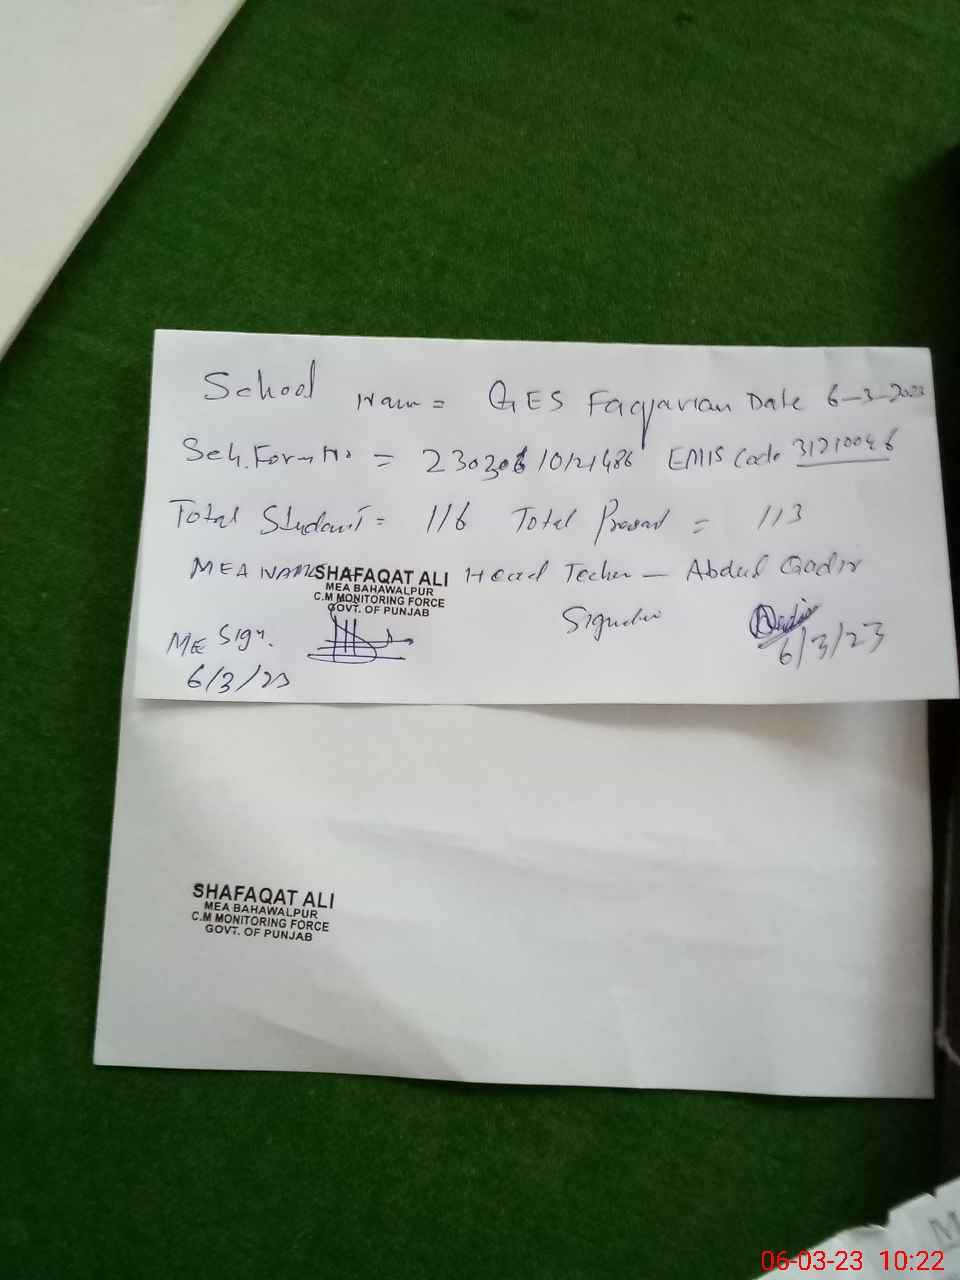 School Name = GES Faqiarian Date 6-3-2023
Sch. Form No = 230306 10121486 EMIS Code 31210046
Total Student = 116 Total Present = 113
MEA NAME SHAFAQAT ALI Head Techer — Abdul Qadir
MEA BAHAWALPUR
C.M MONITORING FORCE
GOVT. OF PUNJAB
ME Sign.
6/3/23
6/3/23
SHAFAQAT ALI
MEA BAHAWALPUR
C.M MONITORING FORCE
GOVT. OF PUNJAB
06-03-23 10:22